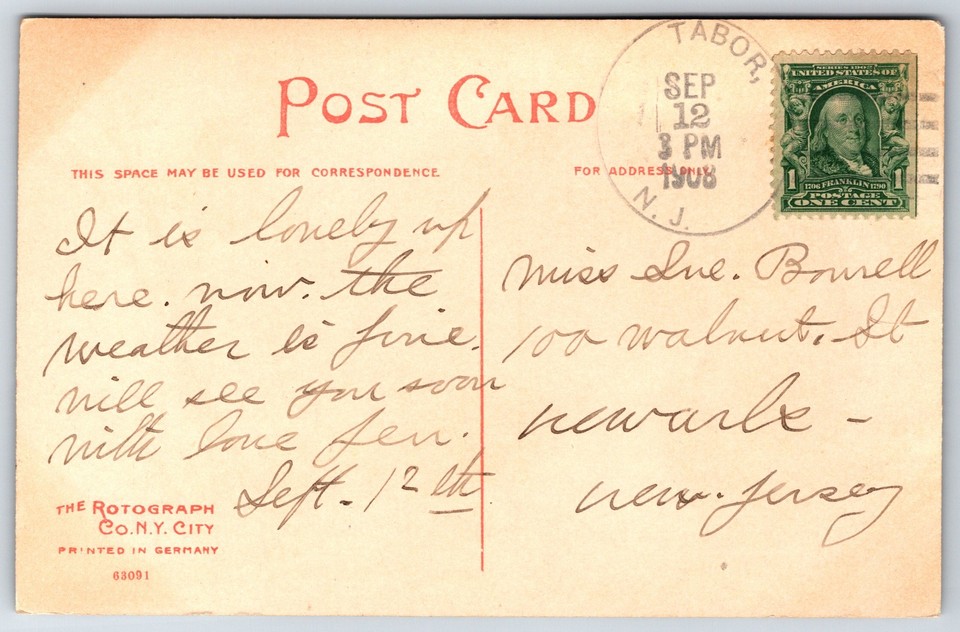 POST CARD
THIS SPACE MAY BE USED FOR CORRESPONDENCE.
FOR ADDRESS ONLY.
TABOR,
SEP
12
3 PM
1908
N. J.
SERIES 1902
UNITED STATES OF
AMERICA
1 1706 FRANKLIN 1790 1
POSTAGE
ONE CENT
It is lonely up
here. now. the
weather is fine.
will see you soon
with love Jen.
Sept. 12th
Miss Sue. Bonnell
100 walnut. St
newark -
new. Jersey
THE ROTOGRAPH
CO. N.Y. CITY
PRINTED IN GERMANY
63091